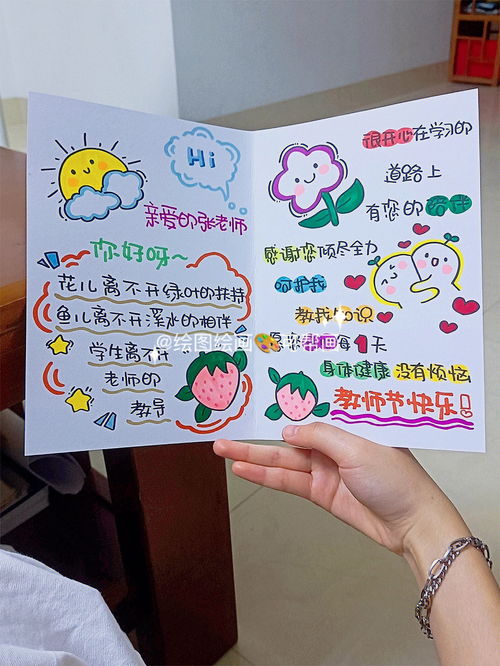 Hi
亲爱的张老师
你好呀~
花儿离不开绿叶的扶持
鱼儿离不开溪水的相伴
学生离不开
老师的
教导
很开心在学习的
道路上
有您的陪伴
感谢您倾尽全力
呵护我
教我知识
每1天
身体健康 没有烦恼
教师节快乐!
@绘图绘画🎨